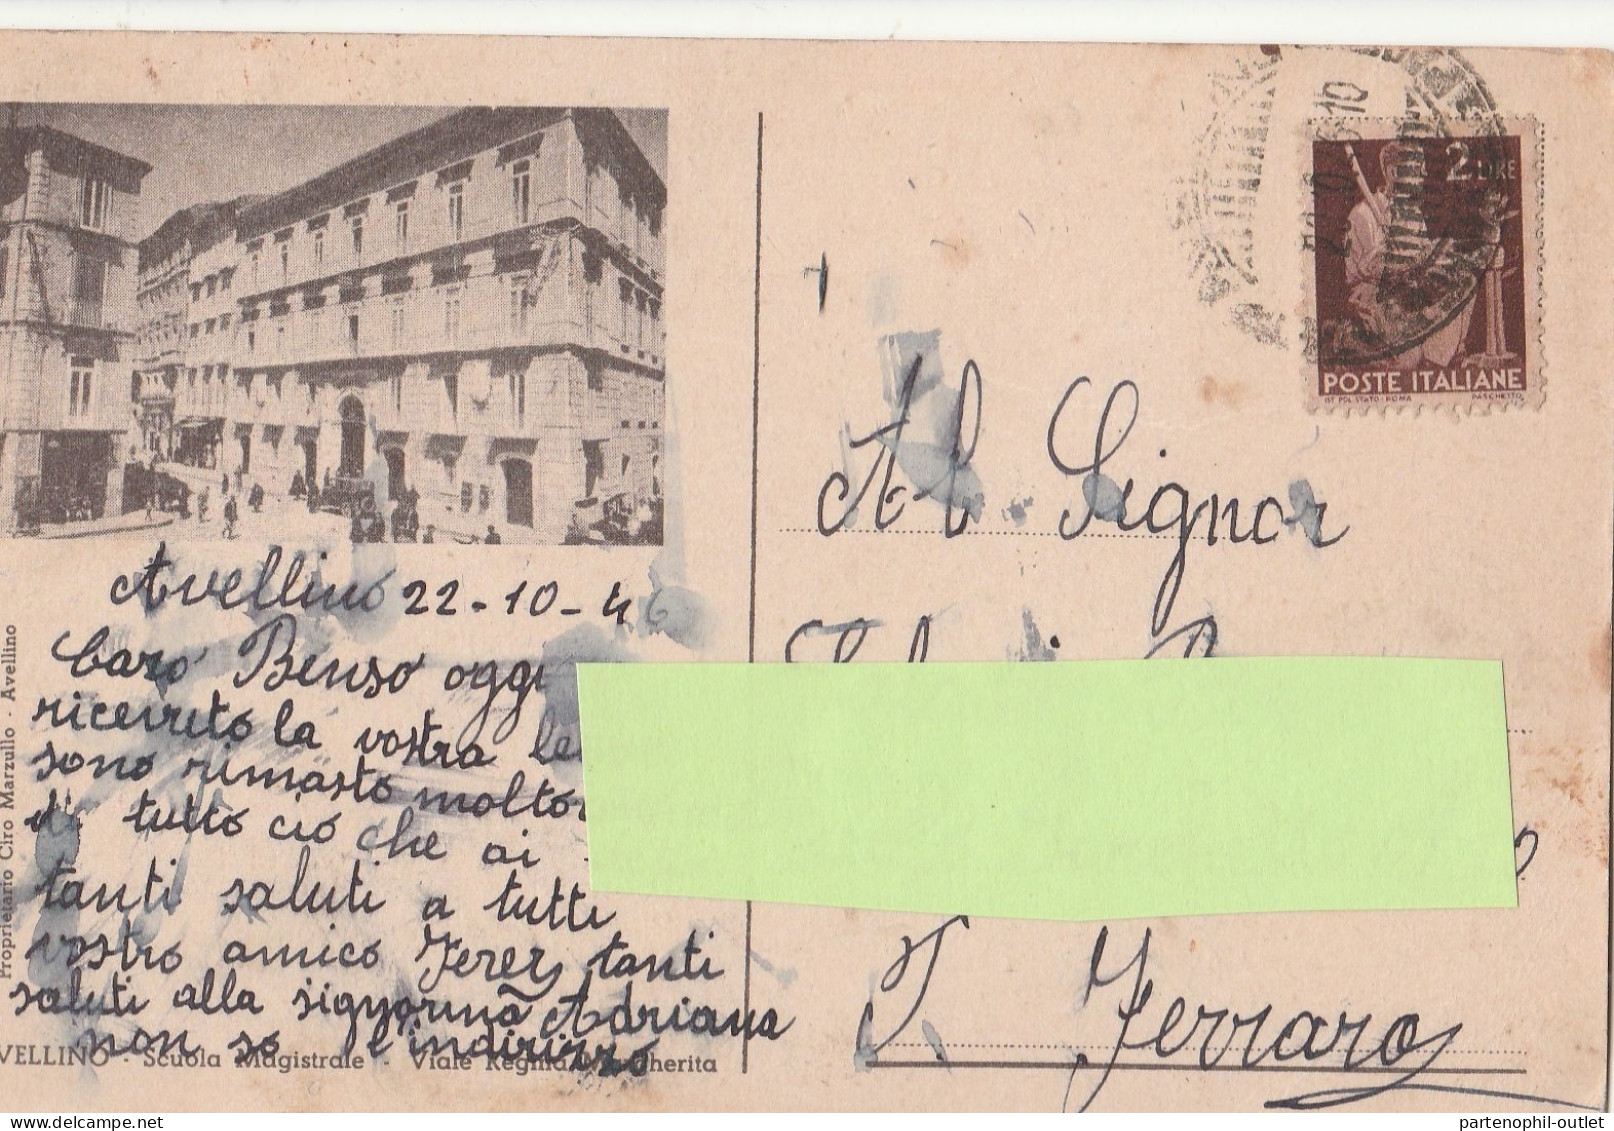 2 LIRE
POSTE ITALIANE
IST. POL. STATO - ROMA PASCHETTO
Avellino 22-10-46
Caro Benso oggi
ricevuto la vostra
sono rimasto molto
di tutto ciò che ai
tanti saluti a tutti
vostro amico Ferez tanti
saluti alla signorina Adriana
non so l'indirizzo
VELLINO - Scuola Magistrale - Viale Regina Margherita
Proprietario Ciro Marzullo - Avellino
Al Signor
Ferraro
partenophil-outlet